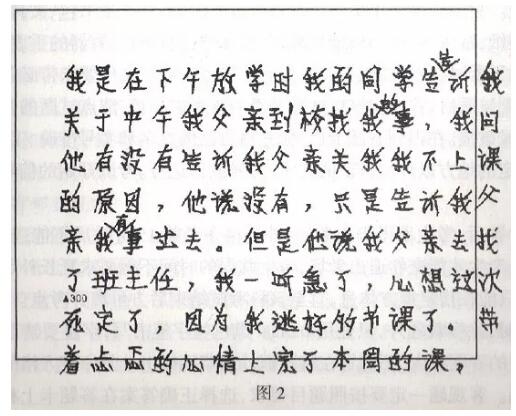 我是在下午放学时我的同学告诉我
关于中午我父亲到校找我故事，我问
他有没有告诉我父亲关我我不上课
的原因，他说没有，只是告诉我父
亲我有事出去。但是他说我父亲去找
了班主任，我一听急了，心想这次
▲300
死定了。因为我逃好的节课了。带
着忐忑的心情一 的课。
图2